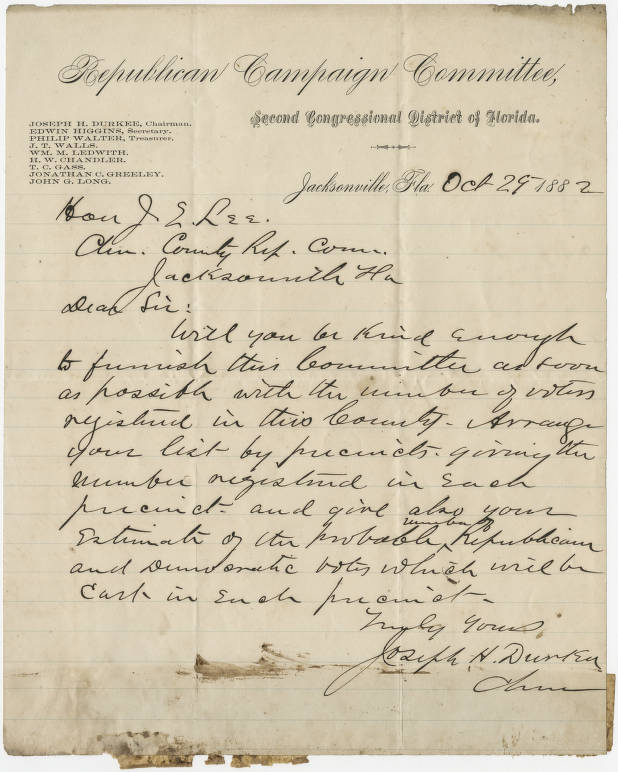 Republican Campaign Committee,
Second Congressional District of Florida.
JOSEPH H. DURKEE, Chairman.
EDWIN HIGGINS, Secretary.
PHILIP WALTER, Treasurer.
J. T. WALLS.
WM. M. LEDWITH.
H. W. CHANDLER.
T. C. GASS.
JONATHAN C. GREELEY.
JOHN G. LONG.
Jacksonville, Fla Oct 29 1882
Hon J. E. Lee.
Chn. County Rep. Com.
Jacksonville Fla
Dear Sir:
Will you be kind enough
to furnish this Committee as soon
as possible with the number of voters
registered in this County. Arrange
your list by precincts. giving the
number registered in each
precinct. and give also your
number of
Estimate of the probable Republican
and Democratic votes which will be
cast in each precinct.
Truly Yours
Joseph H. Durkee
Chm